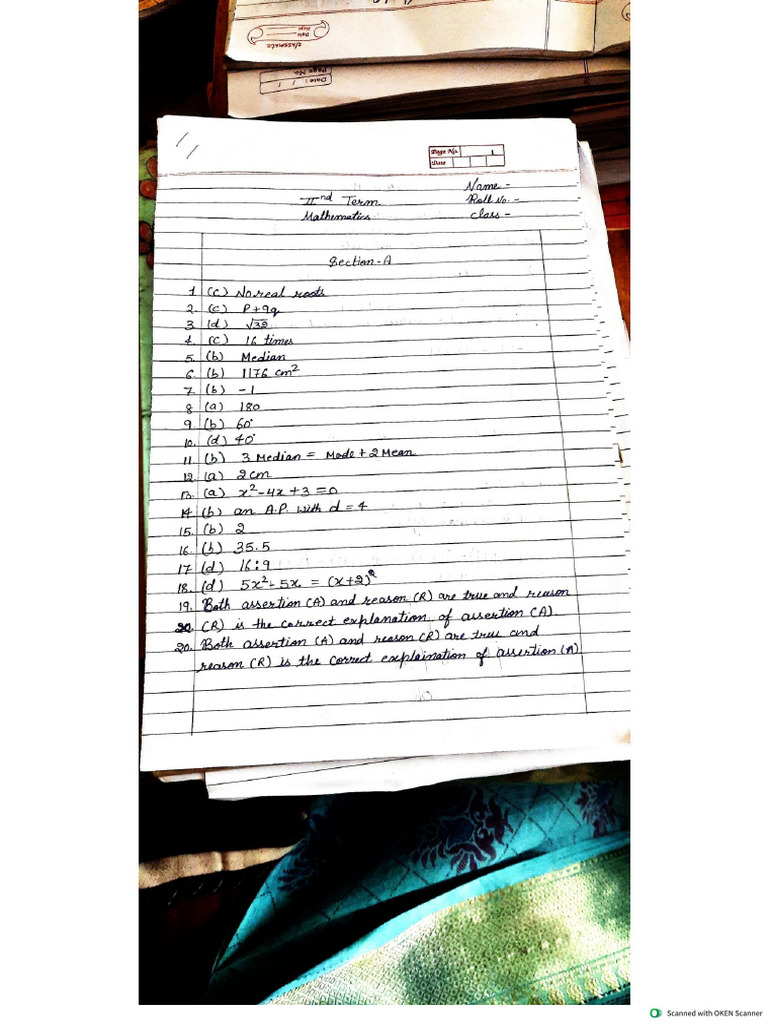 classmate
Date
Page
Date :
Page No.
Page No. 1
Date
Name -
IInd Term
Roll No. -
Mathematics
Class -
Section-A
1. (c) No real roots
2. (c) P+9q
3. (d)
4. (c) 16 times
5. (b) Median
6. (b) 1176 cm²
7. (b) -1
8. (a) 180
9. (b) 60°
10. (d) 40°
11. (b) 3 Median = Mode + 2 Mean
12. (a) 2cm
13. (a) x²-4x+3=0
14. (b) an A.P. with d = 4
15. (b) 2
16. (b) 35.5
17. (d) 16:9
18. (d) 5x²-5x = (x+2)²
19. Both assertion (A) and reason (R) are true and reason
(R) is the correct explanation of assertion (A)
20. Both assertion (A) and reason (R) are true and
reason (R) is the correct explaination of assertion (A)
Scanned with OKEN Scanner